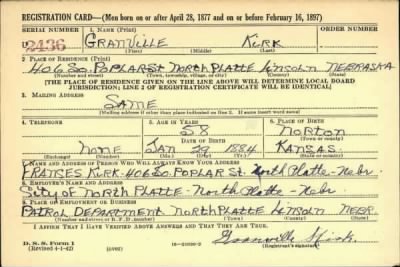 REGISTRATION CARD—(Men born on or after April 28, 1877 and on or before February 16, 1897)
SERIAL NUMBER 1. NAME (Print) ORDER NUMBER
U 2436 GRANVILLE KIRK
(First) (Middle) (Last)
2. PLACE OF RESIDENCE (Print)
406 So. POPLAR ST NORTH PLATTE LINCOLN NEBRASKA
(Number and street) (Town, township, village, or city) (County) (State)
[THE PLACE OF RESIDENCE GIVEN ON THE LINE ABOVE WILL DETERMINE LOCAL BOARD
JURISDICTION; LINE 2 OF REGISTRATION CERTIFICATE WILL BE IDENTICAL]
3. MAILING ADDRESS
SAME
[Mailing address if other than place indicated on line 2. If same insert word same]
4. TELEPHONE 5. AGE IN YEARS 6. PLACE OF BIRTH
58 NORTON
DATE OF BIRTH (Town or county)
NONE JAN 29 1884 KANSAS.
(Exchange) (Number) (Mo.) (Day) (Yr.) (State or country)
7. NAME AND ADDRESS OF PERSON WHO WILL ALWAYS KNOW YOUR ADDRESS
FRANCES KIRK - 406 So. POPLAR St. North Platte - Nebr.
8. EMPLOYER'S NAME AND ADDRESS
City of NORTH PLATTE - North Platte - Nebr.
9. PLACE OF EMPLOYMENT OR BUSINESS
PATROL DEPARTMENT NORTH PLATTE LINCOLN NEBR.
(Number and street or R. F. D. number) (Town) (County) (State)
I AFFIRM THAT I HAVE VERIFIED ABOVE ANSWERS AND THAT THEY ARE TRUE.
D. S. S. Form 1
(Revised 4-1-42) (over) Granville Kirk
(Registrant's signature)